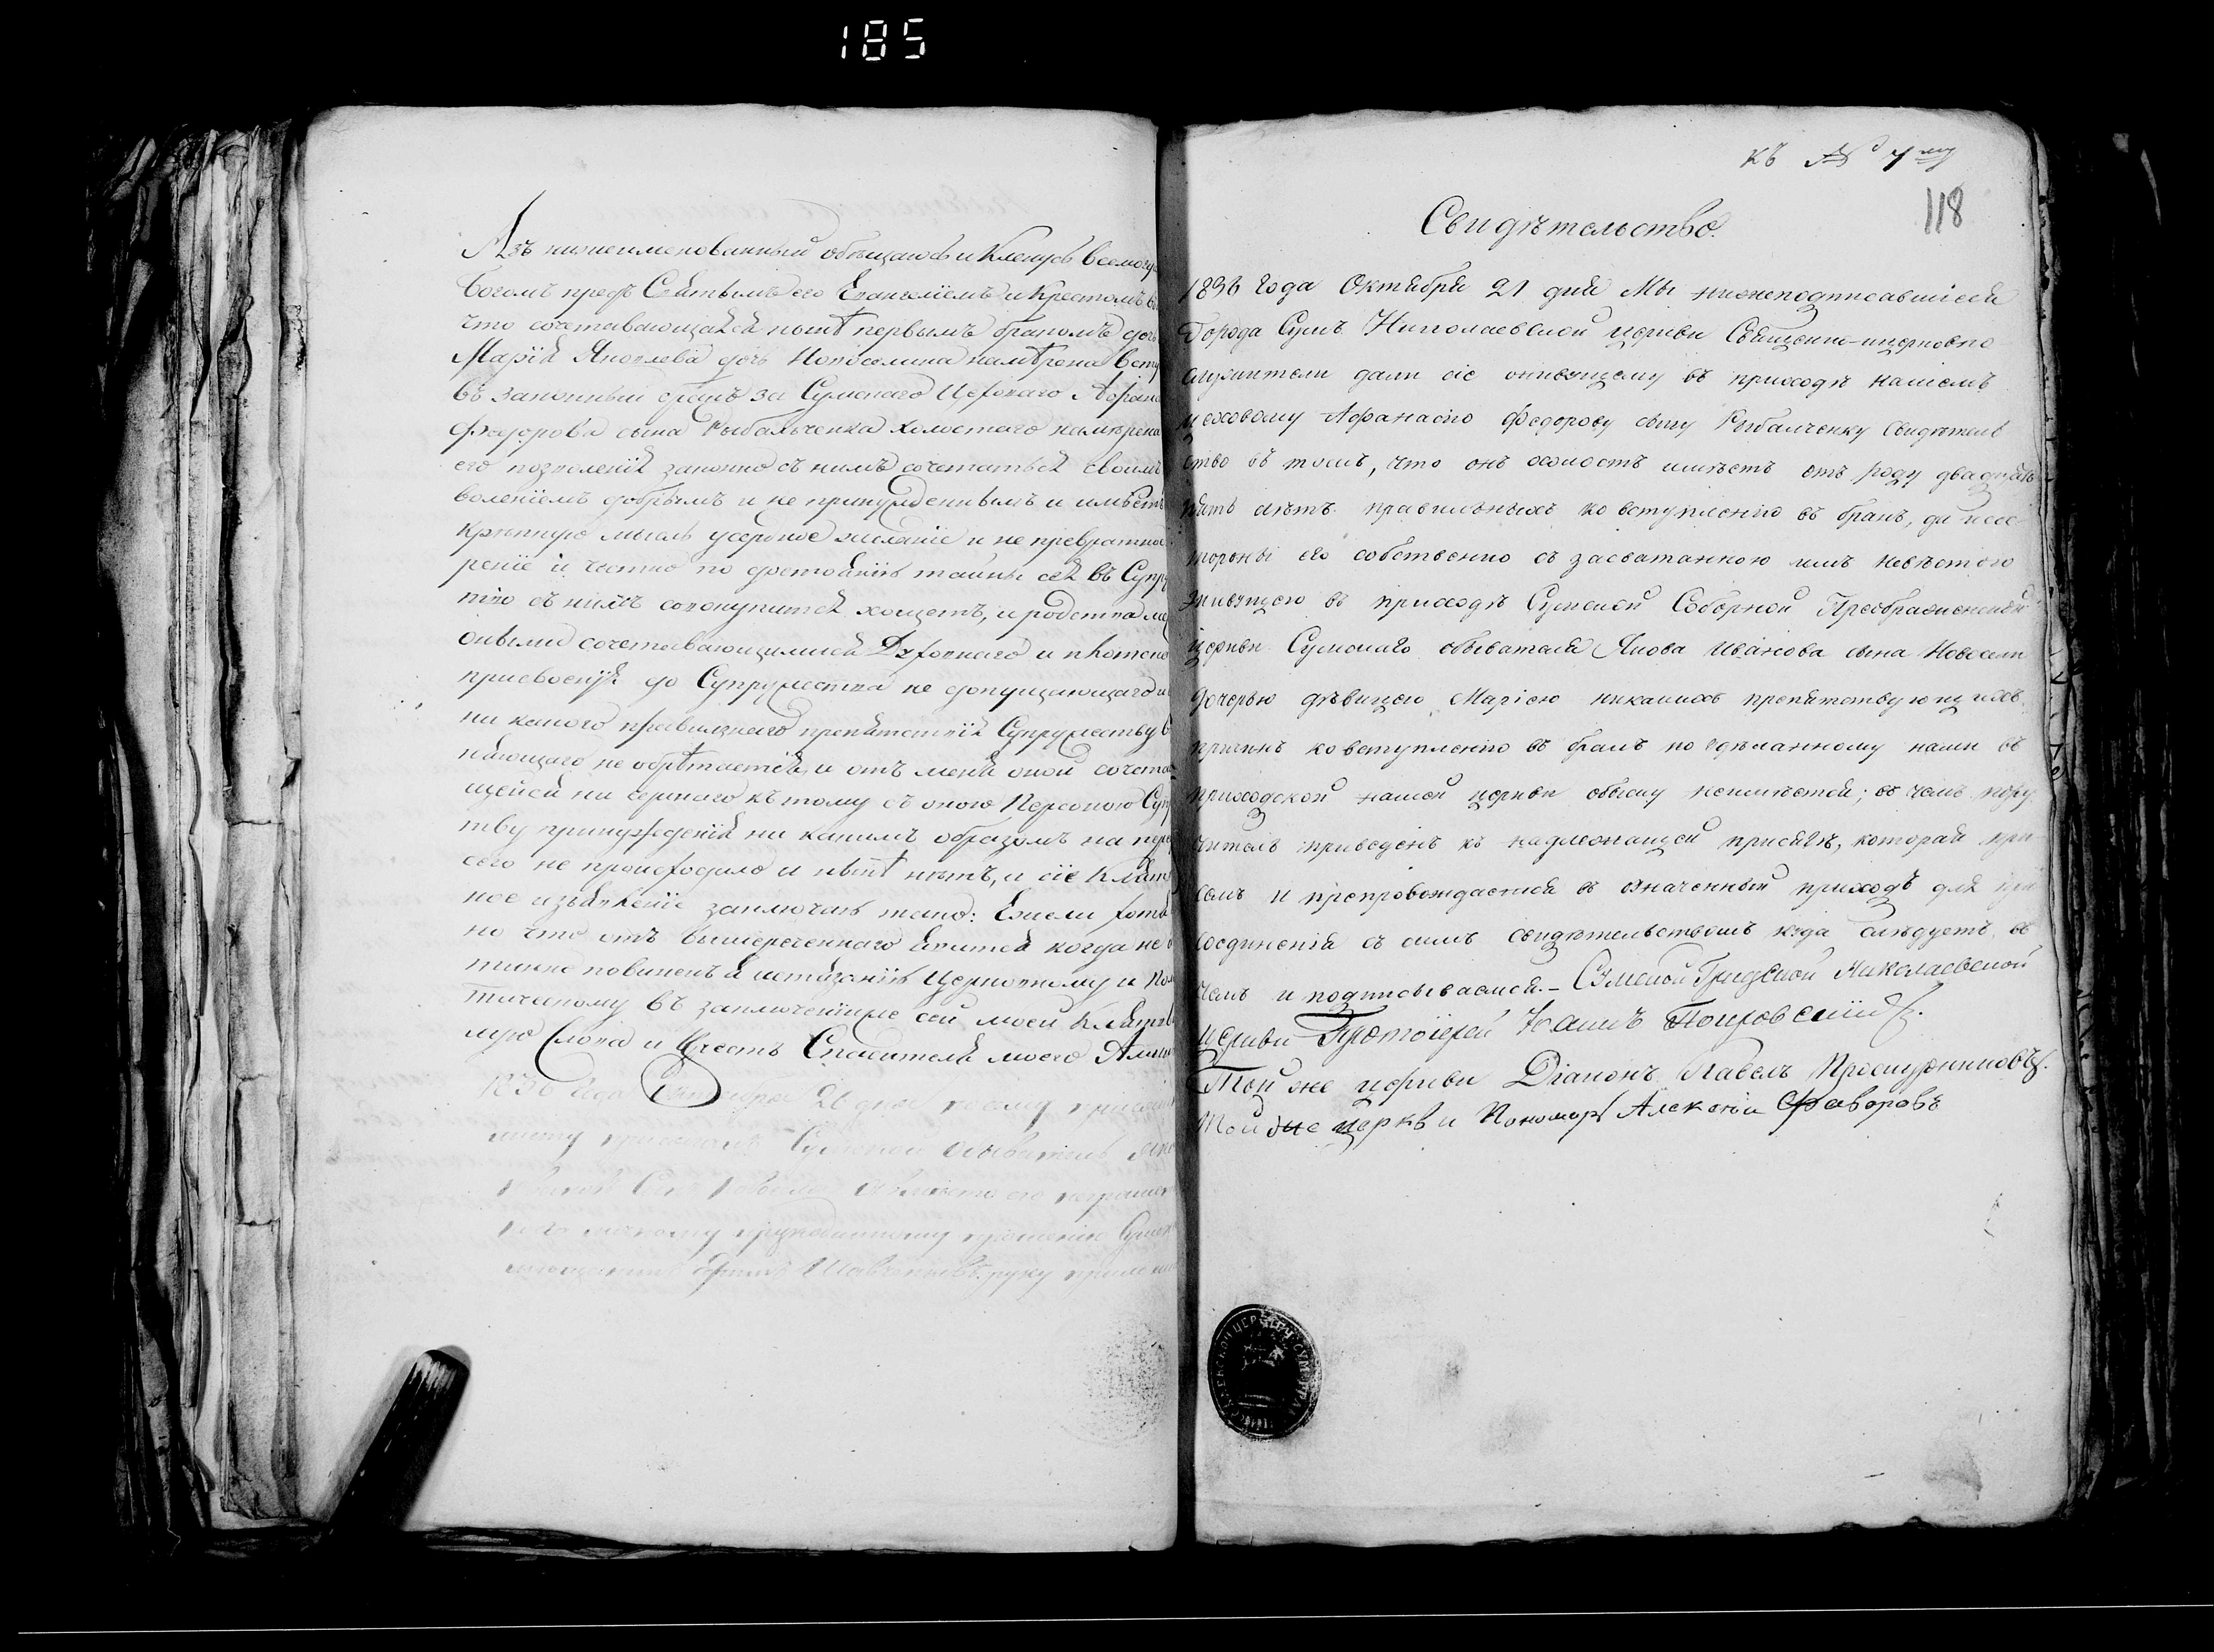 185
Азъ нижеименованный обѣщаюсь и Кленусь Всемогу
Богомъ предъ Святымъ его Евангелiемъ и Крестомъ
что сочетавающаяся нынѣ первымъ бракомъ дочь
Марiя Яковлева дочь Новоселина намѣрена всту
въ законный бракъ за Сумскаго Цеховаго Афана
Федорова сына Рыбальченка холостаго намѣрена
его позволенiя законно съ нимъ сочетаться своимъ
волениемъ добрымъ и не принужденнымъ и имѣетъ
крѣпкую мысль усердное желанiе и не превратное
ренiе и честно по достоянiю тайны сея въ Супру
тво съ нимъ совокупится хощетъ, и родства ме
оными сочетавающимися Духовнаго и плотска
присвоенiя до Супружества не допущающаго и
ни какого правилнаго препятствiя Супружеству в
няющаго не обрѣтается, и отъ меня оной сочета
щейся ни единаго къ тому съ оною Персоною Суп
тву принужденiя ни какимъ образомъ на пере
сего не происходило и нынѣ нѣтъ, и сiе Клятв
ное изъявленiе заключаю тако: Ежели хотя
но что отъ вышереченнаго явится когда не и
тинно повиненъ я истязанiю Церковному и Поли
тическому въ заключенiиже сей моей Клятвы
лую Слова и Крестъ Спасителя моего Аминь
1836 года Октября 26 дня к сему присяж
листу Сумской обыватель Яко
Новосел вмѣсто его неграмот
по его личному рукоданному прошенiю Сумск
мещанинъ руку прилож
къ № 7му
118
Свидѣтельство.
1836 года Октября 21 дня Мы нижеподписавшiеся
Города Сумъ Николаевской церкви Священно-ицерковно
служители дали сiе живущему въ приходѣ нашемъ
цеховому Афанасiю Федорову сыну Рыбалченку Свидѣтель
ство въ томъ, что онъ холостъ имѣетъ отъ роду двадцать
пять лѣтъ правильныхъ ко вступленiю въ бракъ, да и со с
тороны его собственно съ засватанною имъ невѣстою
живущею въ приходѣ Сумской Соборной Преображенской
Церкви Сумскаго обывателя Якова Иванова сына Новосели
дочерью дѣвицею Марiею никакихъ препятствующихъ
причинъ ко вступленiю въ бракъ по сдѣланному нами въ
приходской нашей церкви обыску неимѣется; въ чемъ пору
читель приведенъ къ надлежащей присягѣ, которая при
семъ и препровождается въ означенный приходъ для прi
соединенiя съ симъ свидѣтельствомъ куда слѣдуетъ въ
чемъ и подписываемся. - Сумской Градской Николаевской
церкви Протоiерей Iоаннъ Покровскiй
Той же церкви Дiаконъ Павелъ Проскурниковъ.
Той же церкви Пономарь Алексiй Фаворовъ